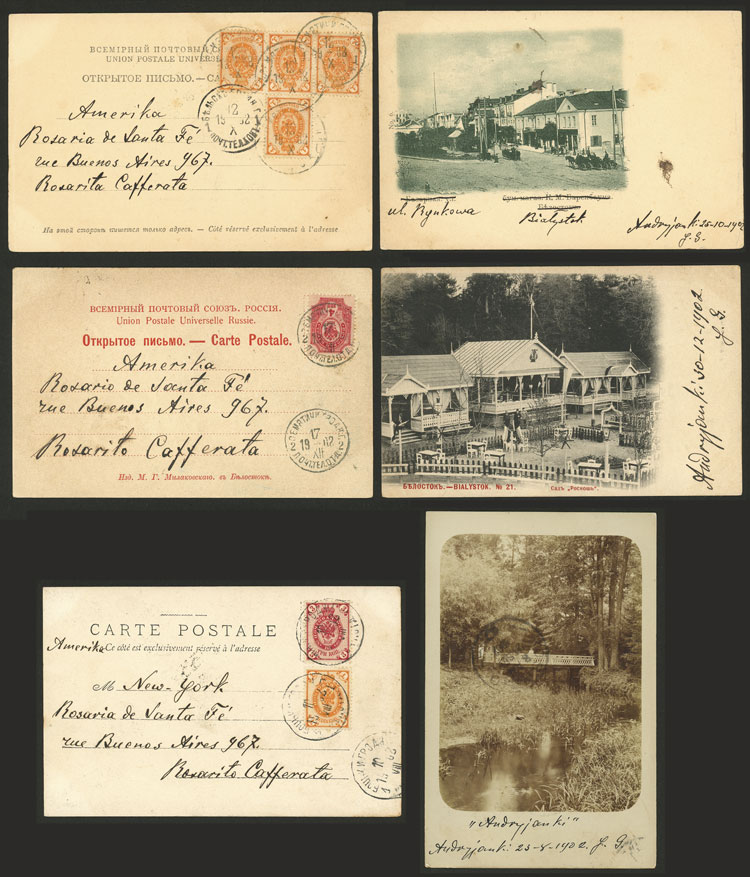 ВСЕМІРНЫЙ ПОЧТОВЫЙ СОЮЗ
UNION POSTALE UNIVERS
ОТКРЫТОЕ ПИСЬМО. — CA
Amerika
Rosaria de Santa Fé
rue Buenos Aires 967.
Rosarita Cafferata
На этой сторонѣ пишется только адресъ. — Côté réservé exclusivement à l'adresse
12
X
ul. Rynkowa
Bialystok
Бѣлостокъ
Andryjanki 25-10-1902
J. G.
ВСЕМІРНЫЙ ПОЧТОВЫЙ СОЮЗЪ. РОССІЯ.
Union Postale Universelle Russie.
Открытое письмо. — Carte Postale.
Amerika
Rosario de Santa Fé
rue Buenos Aires 967.
Rosarito Cafferata
17
19 02
XII
Изд. М. Г. Милаковскаго. въ Бѣлостокѣ.
БѢЛОСТОКЪ. — BIALYSTOK. № 21.
Садъ „Роскошъ".
Andryjanki 30-12-1902
J. G.
CARTE POSTALE
Amerika
Ce côté est exclusivement réservé à l'adresse
M New-York
Rosaria de Santa Fé
rue Buenos Aires 967.
Rosarito Cafferata
"Andryjanki"
Andryjanki 23-8-1902. J. G.